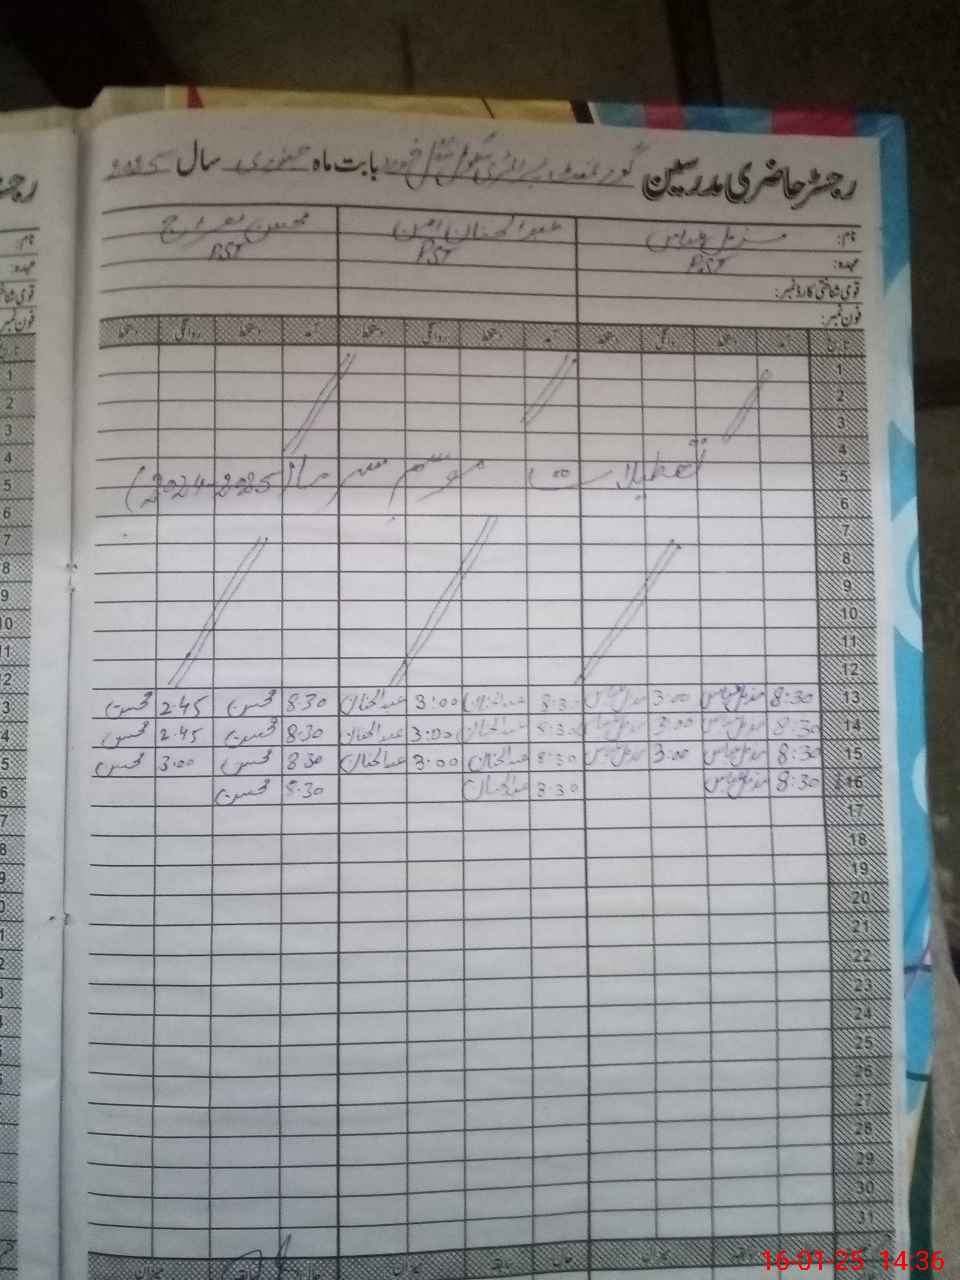 رجسٹر حاضری مدرسین گورنمنٹ پرائمری سکول بابت ماہ جنوری سال 2025
نام: مزمل عباس عبدالحنان محسن
عہدہ: PST PST PST
قومی شناختی کارڈ نمبر:
فون نمبر:
تاریخ آمد دستخط روانگی دستخط آمد دستخط روانگی دستخط آمد دستخط روانگی دستخط
1
2
3
4
تعطیلات موسم سرما (2024-2025)
5
6
7
8
9
10
11
12
13 8:30 مزمل عباس 3:00 مزمل عباس 8:30 عبدالحنان 3:00 عبدالحنان 8:30 محسن 2:45 محسن
14 8:30 مزمل عباس 3:00 مزمل عباس 8:30 عبدالحنان 3:00 عبدالحنان 8:30 محسن 2:45 محسن
15 8:30 مزمل عباس 3:00 مزمل عباس 8:30 عبدالحنان 3:00 عبدالحنان 8:30 محسن 3:00 محسن
16 8:30 مزمل عباس 8:30 عبدالحنان 8:30 محسن
17
18
19
20
21
22
23
24
25
26
27
28
29
30
31
16-01-25 14:36